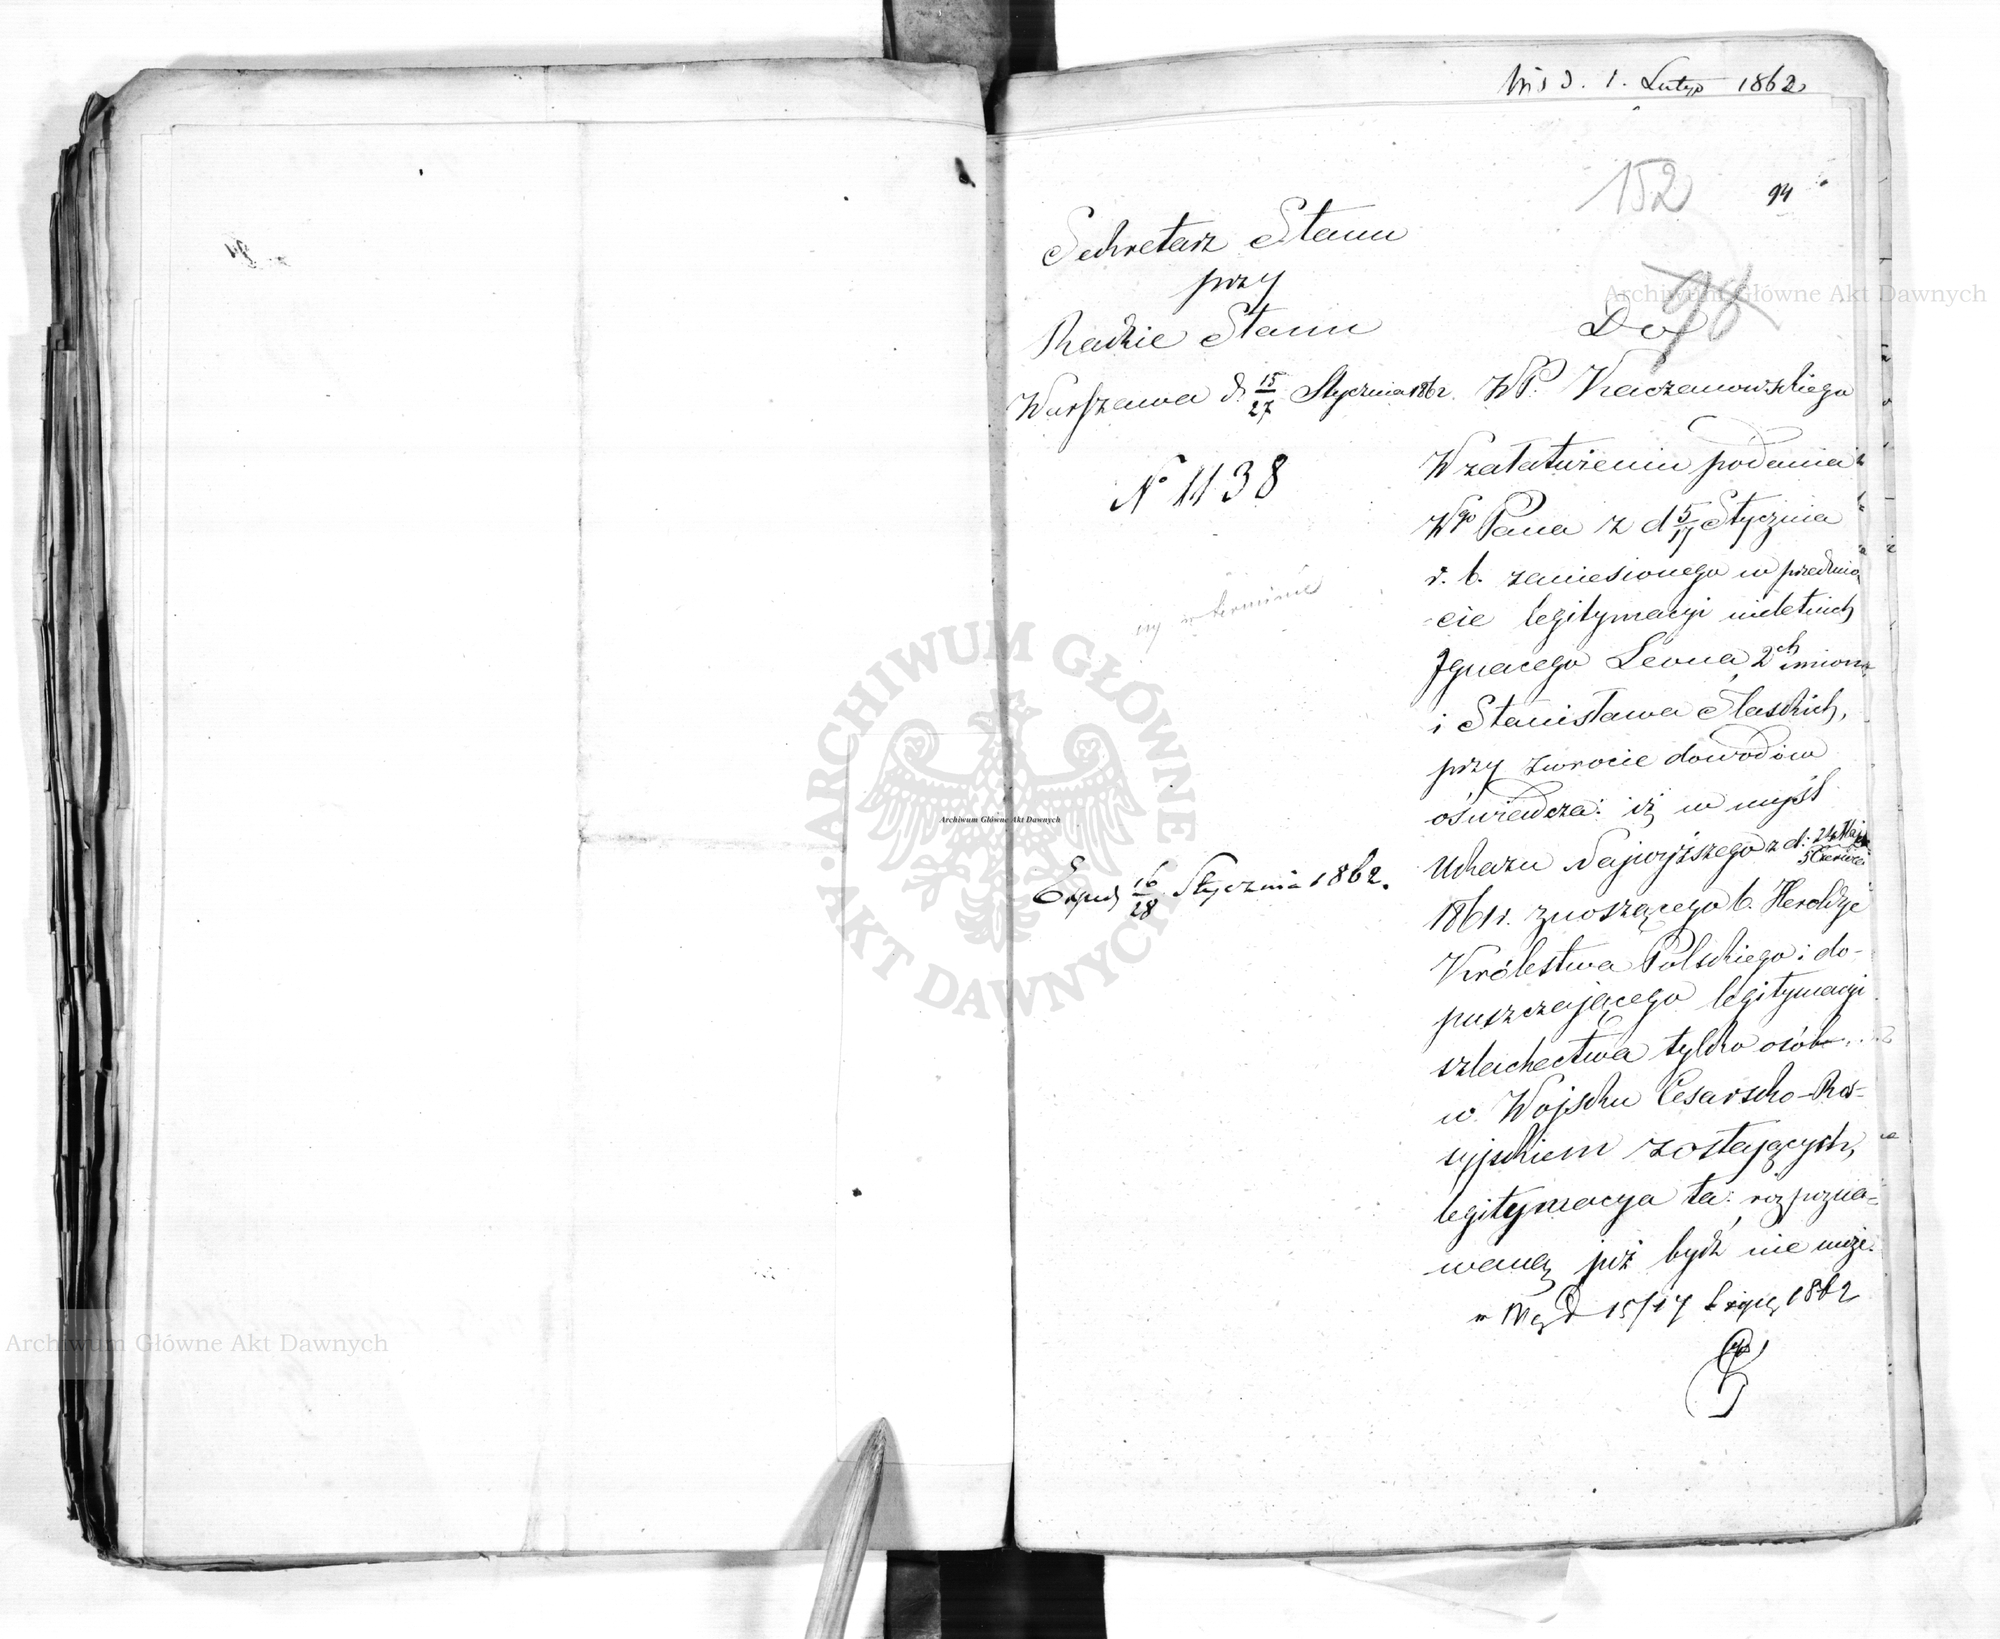 d. 1. Lutego 1862
152
94
98
Sekretarz Stanu
przy
Radzie Stanu
Warszawa d. 15/27 Stycznia 1862.
N° 1138
w terminie
Exped 16/28 Stycznia 1862.
Do
WP. Kaczanowskiego
W załatwieniu podania
Wgo Pana z d 5/17 Stycznia
r. b. zaniesionego w przedmio
-cie legitymacyi nieletnich
Ignacego Leona 2ch imion
i Stanisława Slaskich,
przy zwrocie dowodów
oświadcza: iż w myśl
Ukazu Najwyższego z d. 24 Maja/5 Czerwca
1861 r. znoszącego b. Heroldyę
Królestwa Polskiego i do-
puszczającego legitymacyi
szlachectwa tylko osób
w Wojsku Cesarsko-Ros-
syjskiem zostających,
legitymacya ta: rozpozna-
waną już bydź nie może.
15/17 1862
Archiwum Główne Akt Dawnych
Archiwum Główne Akt Dawnych
Archiwum Główne Akt Dawnych
ARCHIWUM GŁÓWNE
AKT DAWNYCH